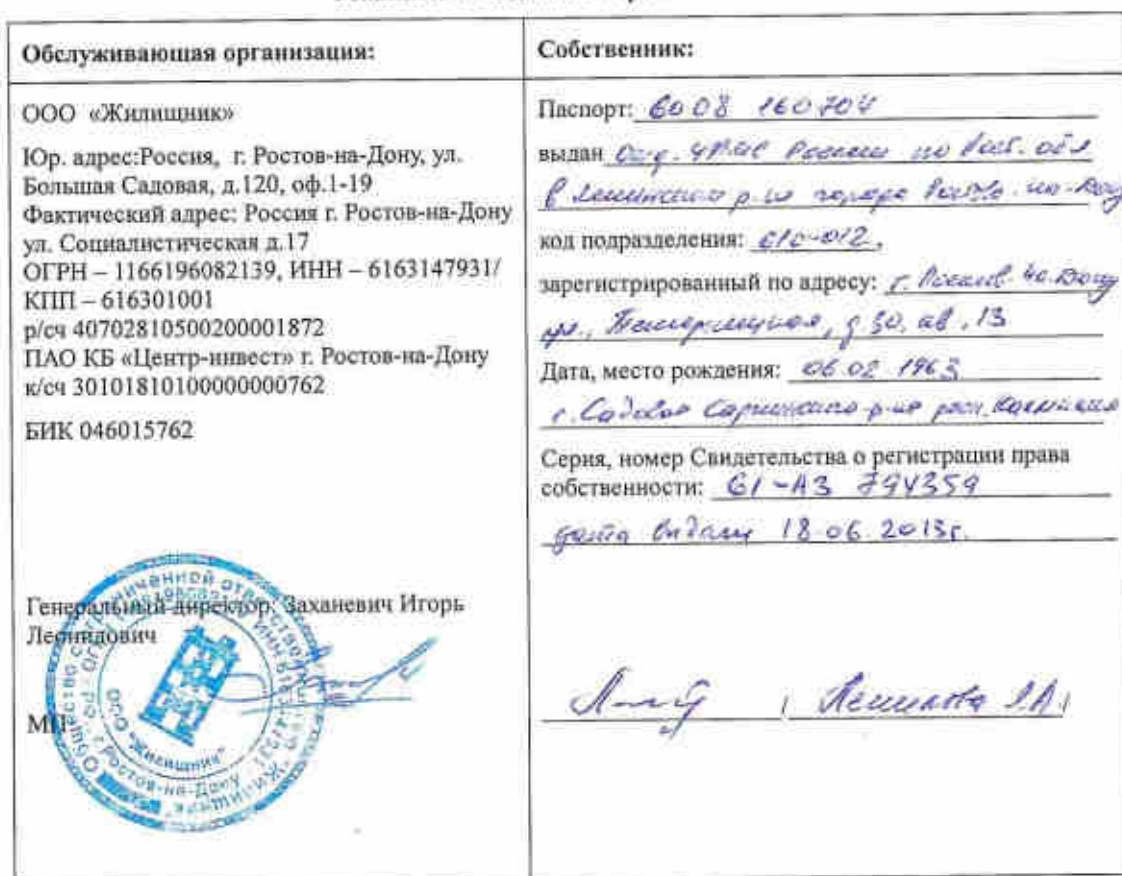 Обслуживающая организация:
ООО «Жилищник»
Юр. адрес:Россия, г. Ростов-на-Дону, ул.
Большая Садовая, д.120, оф.1-19
Фактический адрес: Россия г. Ростов-на-Дону
ул. Социалистическая д.17
ОГРН – 1166196082139, ИНН – 6163147931/
КПП – 616301001
р/сч 40702810500200001872
ПАО КБ «Центр-инвест» г. Ростов-на-Дону
к/сч 30101810100000000762
БИК 046015762
Генеральный директор: Заханевич Игорь
Леонидович
МП
Общество с ограниченной ответственностью "Жилищник"
ООО "Жилищник"
г. Ростов-на-Дону
Собственник:
Паспорт: 6008 160704
выдан Отд. УФМС России по Рост. обл
в Ленинского р-на города Ростова-на-Дону
код подразделения: 610-012,
зарегистрированный по адресу: г. Ростов-на-Дону
д.30, 13
Дата, место рождения: 06.02.1963
с. Садовое Сарпинского р-на респ. Калмыкия
Серия, номер Свидетельства о регистрации права
собственности: 61-АЗ 794359
дата выдачи 18.06.2013г.